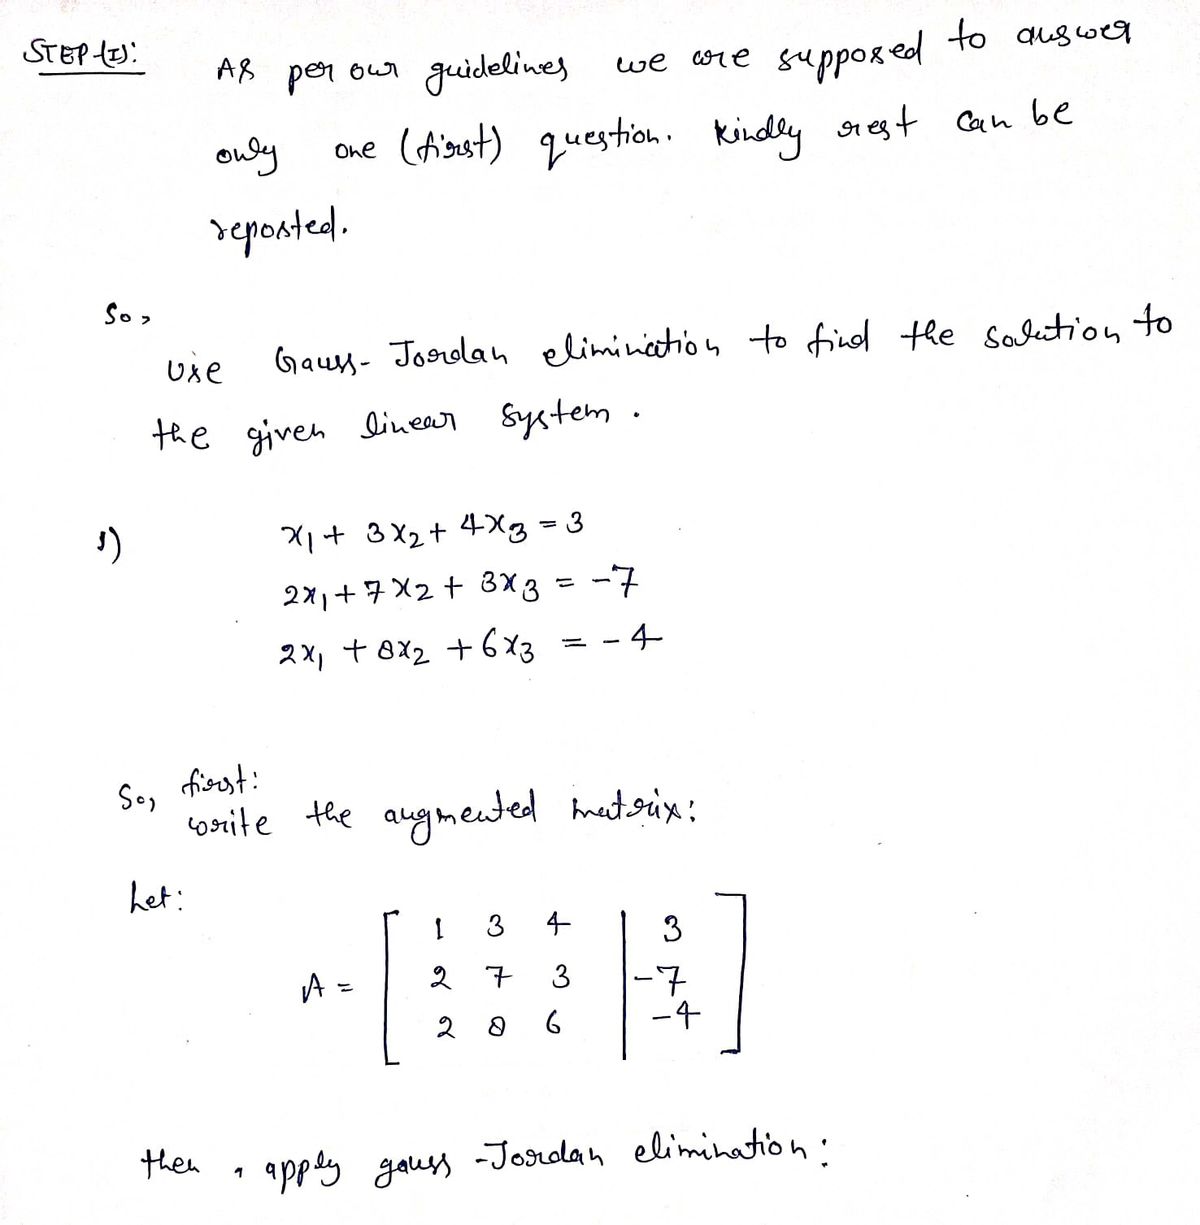 STEP-(I):
As per our guidelines we are supposed to answer
only one (first) question. Kindly rest can be
reposted.
So,
Use Gauss-Jordan elimination to find the solution to
the given linear system.
1) x₁ + 3x₂ + 4x₃ = 3
2x₁ + 7x₂ + 3x₃ = -7
2x₁ + 8x₂ + 6x₃ = -4
So, first:
write the augmented matrix:
Let:
1 3 4 | 3
A = 2 7 3 | -7
2 8 6 | -4
then, apply gauss-Jordan elimination: